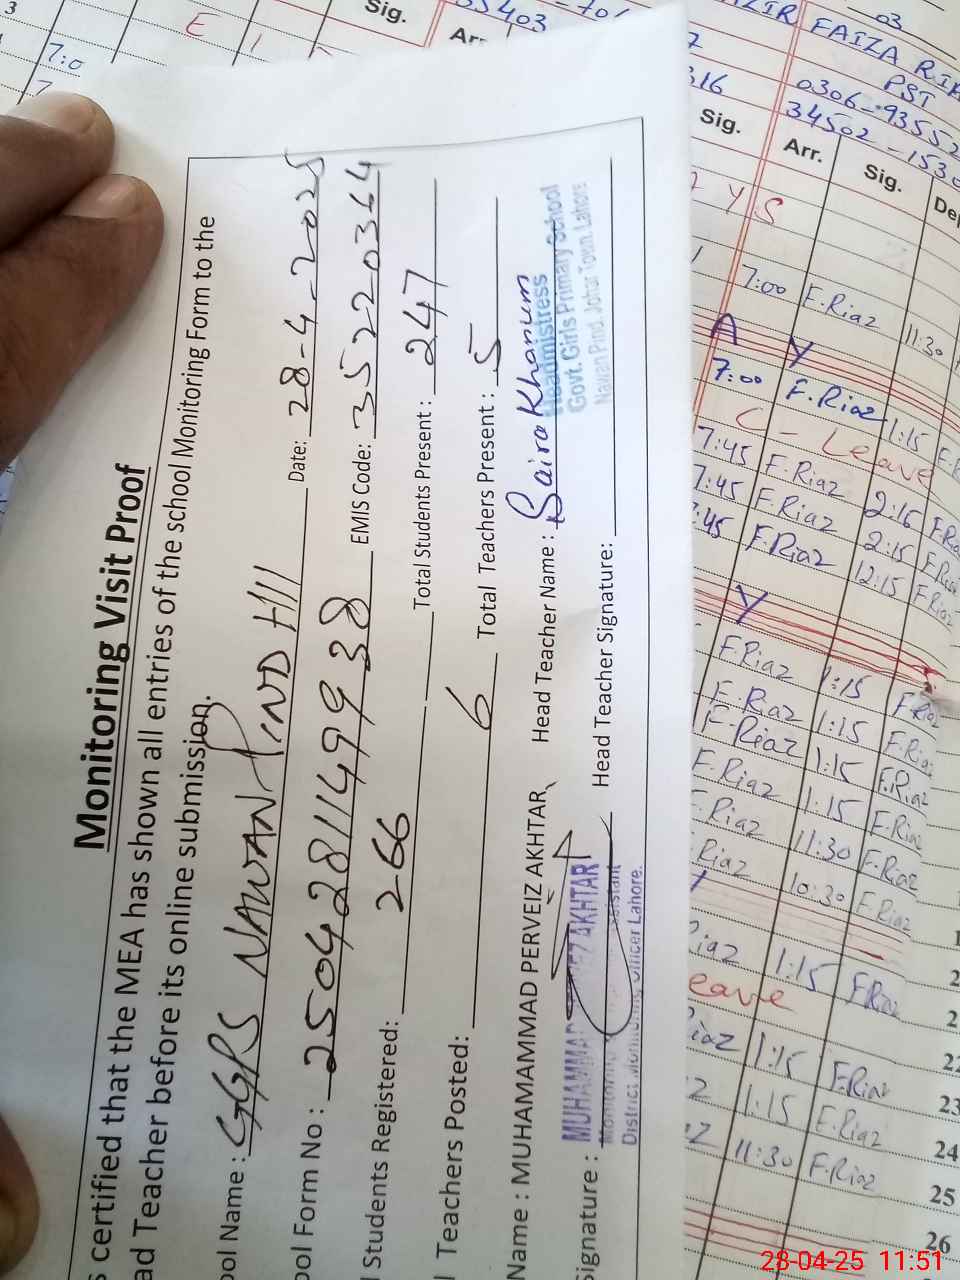 Monitoring Visit Proof
certified that the MEA has shown all entries of the school Monitoring Form to the
ad Teacher before its online submission.
ool Name : GGPS NAWAN PIND H111 Date: 28-4-2025
ool Form No : 25042811499938 EMIS Code: 35220364
l Students Registered: 266 Total Students Present : 247
l Teachers Posted: 6 Total Teachers Present : 5
Name : MUHAMAMMAD PERVEIZ AKHTAR Head Teacher Name : Saira Khanum
Headmistress
Govt. Girls Primary School
Nawan Pind, Johar Town, Lahore
ignature : Head Teacher Signature:
AKHTAR
District Monitoring Officer Lahore.
3
7:0
E
Sig.
Arr.
03
FAIZA
PST
316
0306-93552
34502-1530
Sig. Arr. Sig. De
Y S
7:00 F.Riaz 11:30
A Y
7:00 F.Riaz 1:15
C - Leave
7:45 F.Riaz 2:16 F.Ria
7:45 F.Riaz 2:15 F.Ria
:45 F.Riaz 12:15 F.Riaz
Y
F.Riaz 1:15 F.Riaz
F.Riaz 1:15 F.Riaz
F.Riaz 1:15 F.Riaz
F.Riaz 1:15 F.Riaz
Riaz 11:30 F.Riaz
Riaz 10:30 F.Riaz
Riaz 1:15 F.Riaz
eave
Riaz 1:15 F.Riaz
22
1:15 F.Riaz
23
11:30 F.Riaz
24
25
26
28-04-25 11:51